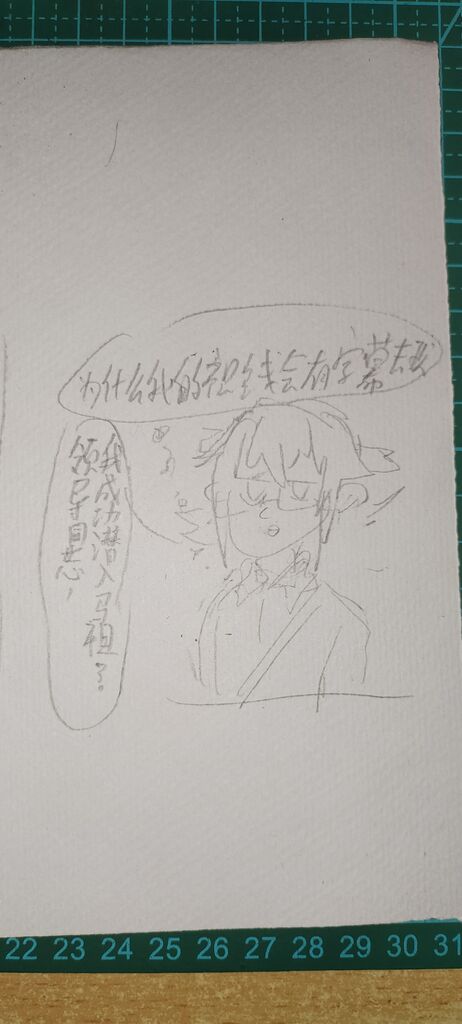 为什么我的视线会有字幕
我成功潜入马祖了
领导同志，
22 23 24 25 26 27 28 29 30 31